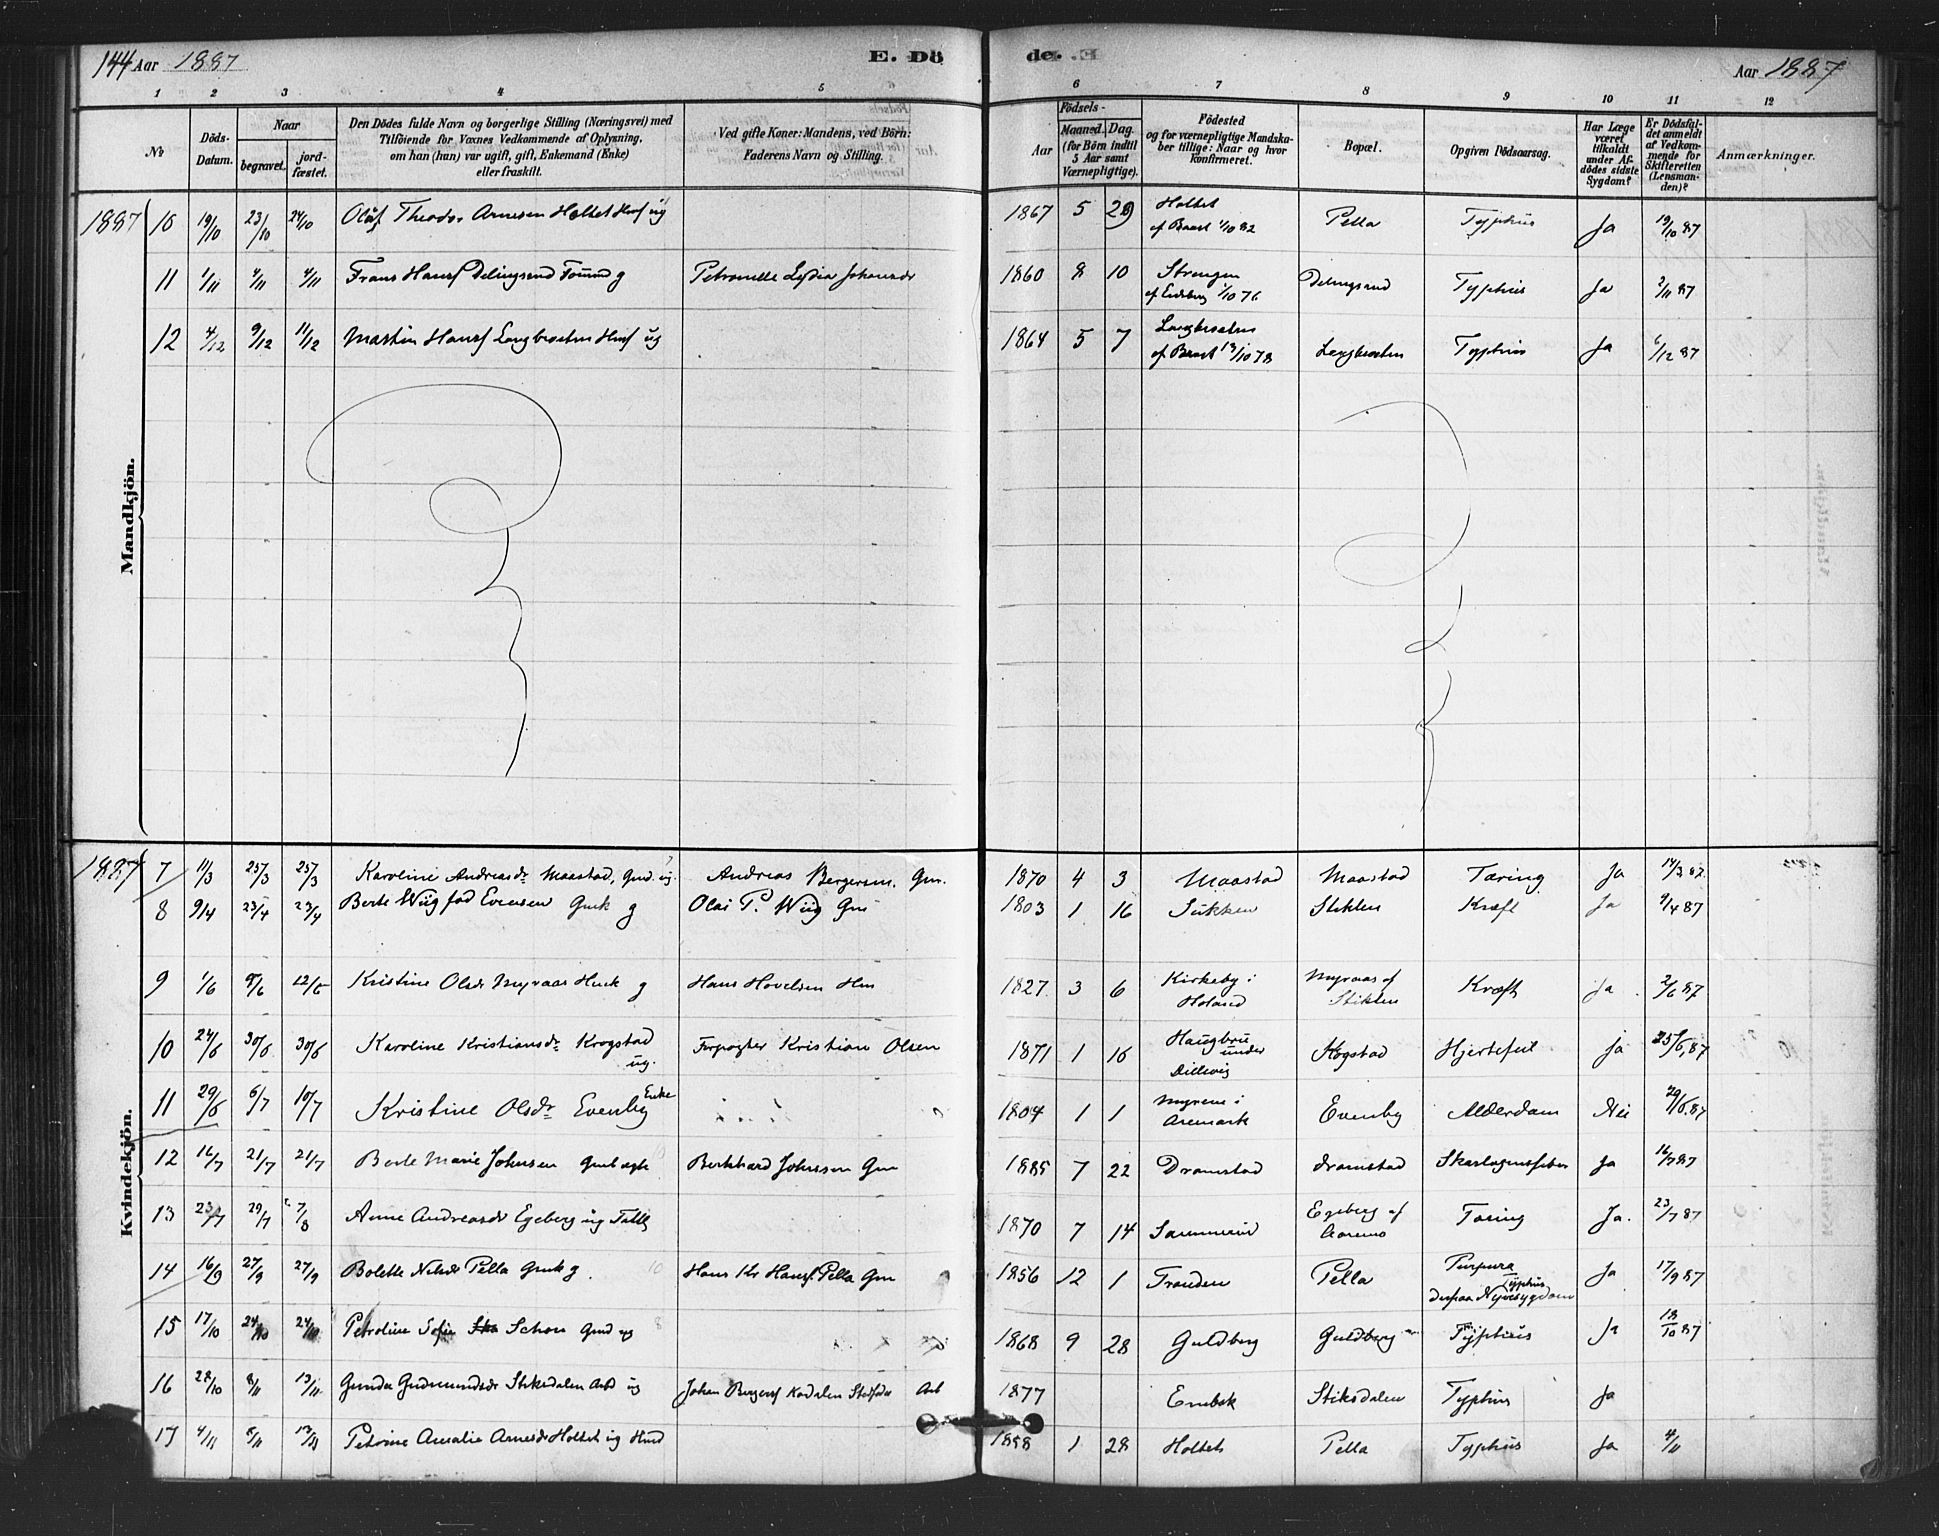 144 Aar 1887
E. Dö
de.
Aar 1887
1 2 3 4 5 6 7 8 9 10 11 12
No
Döds-Datum.
Naar
begravet.
jord-fæstet.
Den Dödes fulde Navn og borgerlige Stilling (Næringsvei) med
Tilföiende for Voxnes Vedkommende af Oplysning,
om han (hun) var ugift, gift, Enkemand (Enke)
eller fraskilt.
Ved gifte Koner: Mandens, ved Börn:
Faderens Navn og Stilling.
Födsels-
Aar
Maaned. Dag.
(for Börn indtil
5 Aar samt
Værnepligtige).
Födested
og for værnepligtige Mandska-
ber tillige: Naar og hvor
konfirmeret.
Bopæl.
Opgiven Dödsaarsag.
Har Læge
været
tilkaldt
under Af-
dödes sidste
Sygdom?
Er Dödsfal-
det anmeldt
af Vedkom-
mende for
Skifteretten
(Lensman-
den)?
Anmærkninger.
Mandkjön.
1887 10 19/10 23/10 24/10 Olaf Theodor Arnesen Holtet ug 1867 5 29 Holtet 1/10 82 Pella Typhus Ja 19/10 87
11 1/11 4/11 4/11 Frans Hansf Delingsrud g Petronelle Lydia Johansdr 1860 8 10 Strengen 1/10 76 Delingsrud Typhus Ja 2/11 87
12 4/12 9/12 11/12 Martin Hansf Langbraaten ug 1864 5 7 Langbraaten 13/10 78 Langbraaten Typhus Ja 6/12 87
Kvindekjön.
1887 7 11/3 25/3 25/3 Karoline Andreasdr Maastad, Gmd. ug. Andreas Bergersen. Gm. 1870 4 3 Maastad Maastad Tæring Ja 14/3 87
8 9/4 23/4 23/4 Berte Wiig fød Evensen Gmk g Olai P. Wiig Gm 1803 1 16 Stikten Kræft Ja 9/4 87
9 1/6 8/6 12/6 Kristine Olsdr Myraas Husk g Hans Hovelsen Hm 1827 3 6 Kirkeby i Høland Myraas af Stikten Kræft Ja 2/6 87
10 24/6 30/6 30/6 Karoline Kristiansdr Krogstad ug. Forpagter Kristian Olsen 1871 1 16 Haugbro under Dillevig Krogstad Hjertefeil Ja 25/6 87
11 29/6 6/7 10/7 Kristine Olsdr Evenby Enke 1804 1 1 Myrene i Aremark Evenby Alderdom Nei 29/6 87
12 16/7 21/7 21/7 Berte Marie Johnsen Gmb ægte Berthard Johnsson Gm 1885 7 22 Dramstad Dramstad Skarlagensfeber Ja 16/7 87
13 23/7 29/7 7/8 Anne Andreasdr Egeberg ug 1870 7 14 Egeberg af Tæring Ja. 23/7 87
14 16/9 27/9 27/9 Bolette Nilsdr Pella Gmk g. Hans Kr Hansf. Pella Gm 1856 12 1 Tranden Pella Purpura Typhus derpaa Nyresygdom Ja 17/9 87
15 17/10 24/10 24/10 Petroline Sofie Schou Gmd ug 1868 9 28 Guldberg Guldberg Typhus Ja 18/10 87
16 28/10 8/11 13/11 Gunda Gudmundsdr Stiksdalen ug Johan Bergersf Stedfader Arb 1877 Enebak Stiksdalen Typhus Ja
17 4/11 8/11 13/11 Petrine Amalie Arnesdr Holtet ug Husd 1858 1 28 Holtet Pella Typhus Ja 4/11